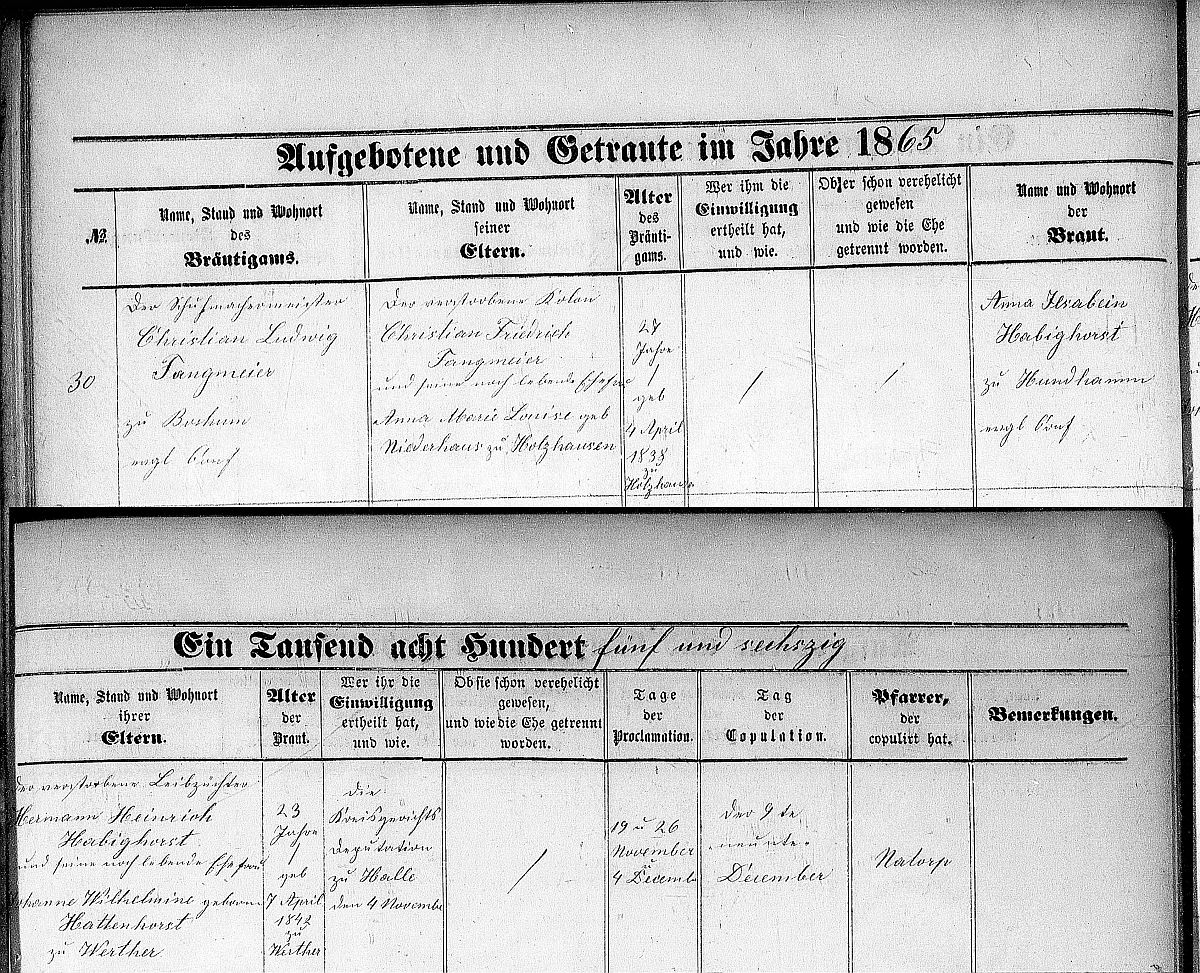 Aufgebotene und Getraute im Jahre 1865
№.
Name, Stand und Wohnort
des
Bräutigams.
Name, Stand und Wohnort
seiner
Eltern.
Alter
des
Bräuti-
gams.
Wer ihm die
Einwilligung
ertheilt hat,
und wie.
Ob er schon verehelicht
gewesen
und wie die Ehe
getrennt worden.
Name und Wohnort
der
Braut.
30
Der Schuhmachermeister
Christian Ludwig
Tangmeier
zu Bochum
evgl Conf
Der verstorbene Kolon
Christian Friedrich
Tangmeier
und seine noch lebende Ehefrau
Anna Marie Louise geb
Niederhaus zu Holzhausen
27
Jahre
/
geb
4 April
1838
zu
Holzhausen
/
/
Anna Ilsabein
Habighorst
zu Hundhamm
evgl Conf
Ein Tausend acht Hundert fünf und sechszig
Name, Stand und Wohnort
ihrer
Eltern.
Alter
der
Braut.
Wer ihr die
Einwilligung
ertheilt hat,
und wie.
Ob sie schon verehelicht
gewesen,
und wie die Ehe getrennt
worden.
Tage
der
Proclamation.
Tag
der
Copulation.
Pfarrer,
der
copulirt hat.
Bemerkungen.
Der verstorbene Leibzüchter
Hermann Heinrich
Habighorst
und seine noch lebende Ehefrau
Johanne Wilhelmine geborne
Hattenhorst
zu Werther
23
Jahre
/
geb
7 April
1842
zu
Werther
die
Kreisgerichts
Deputation
zu Halle
den 4 Novembe
/
19 u 26
November
u
4 Decembe
der 9 te
neunte
December
Natorp